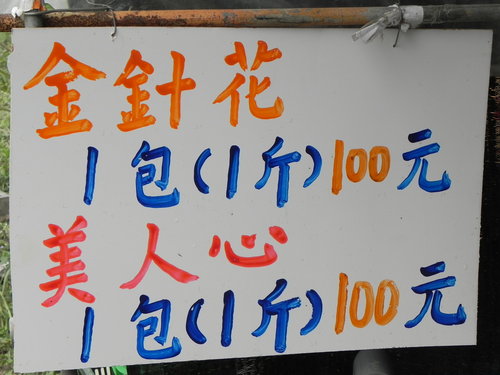 金針花
1包(1斤)100元
美人心
1包(1斤)100元